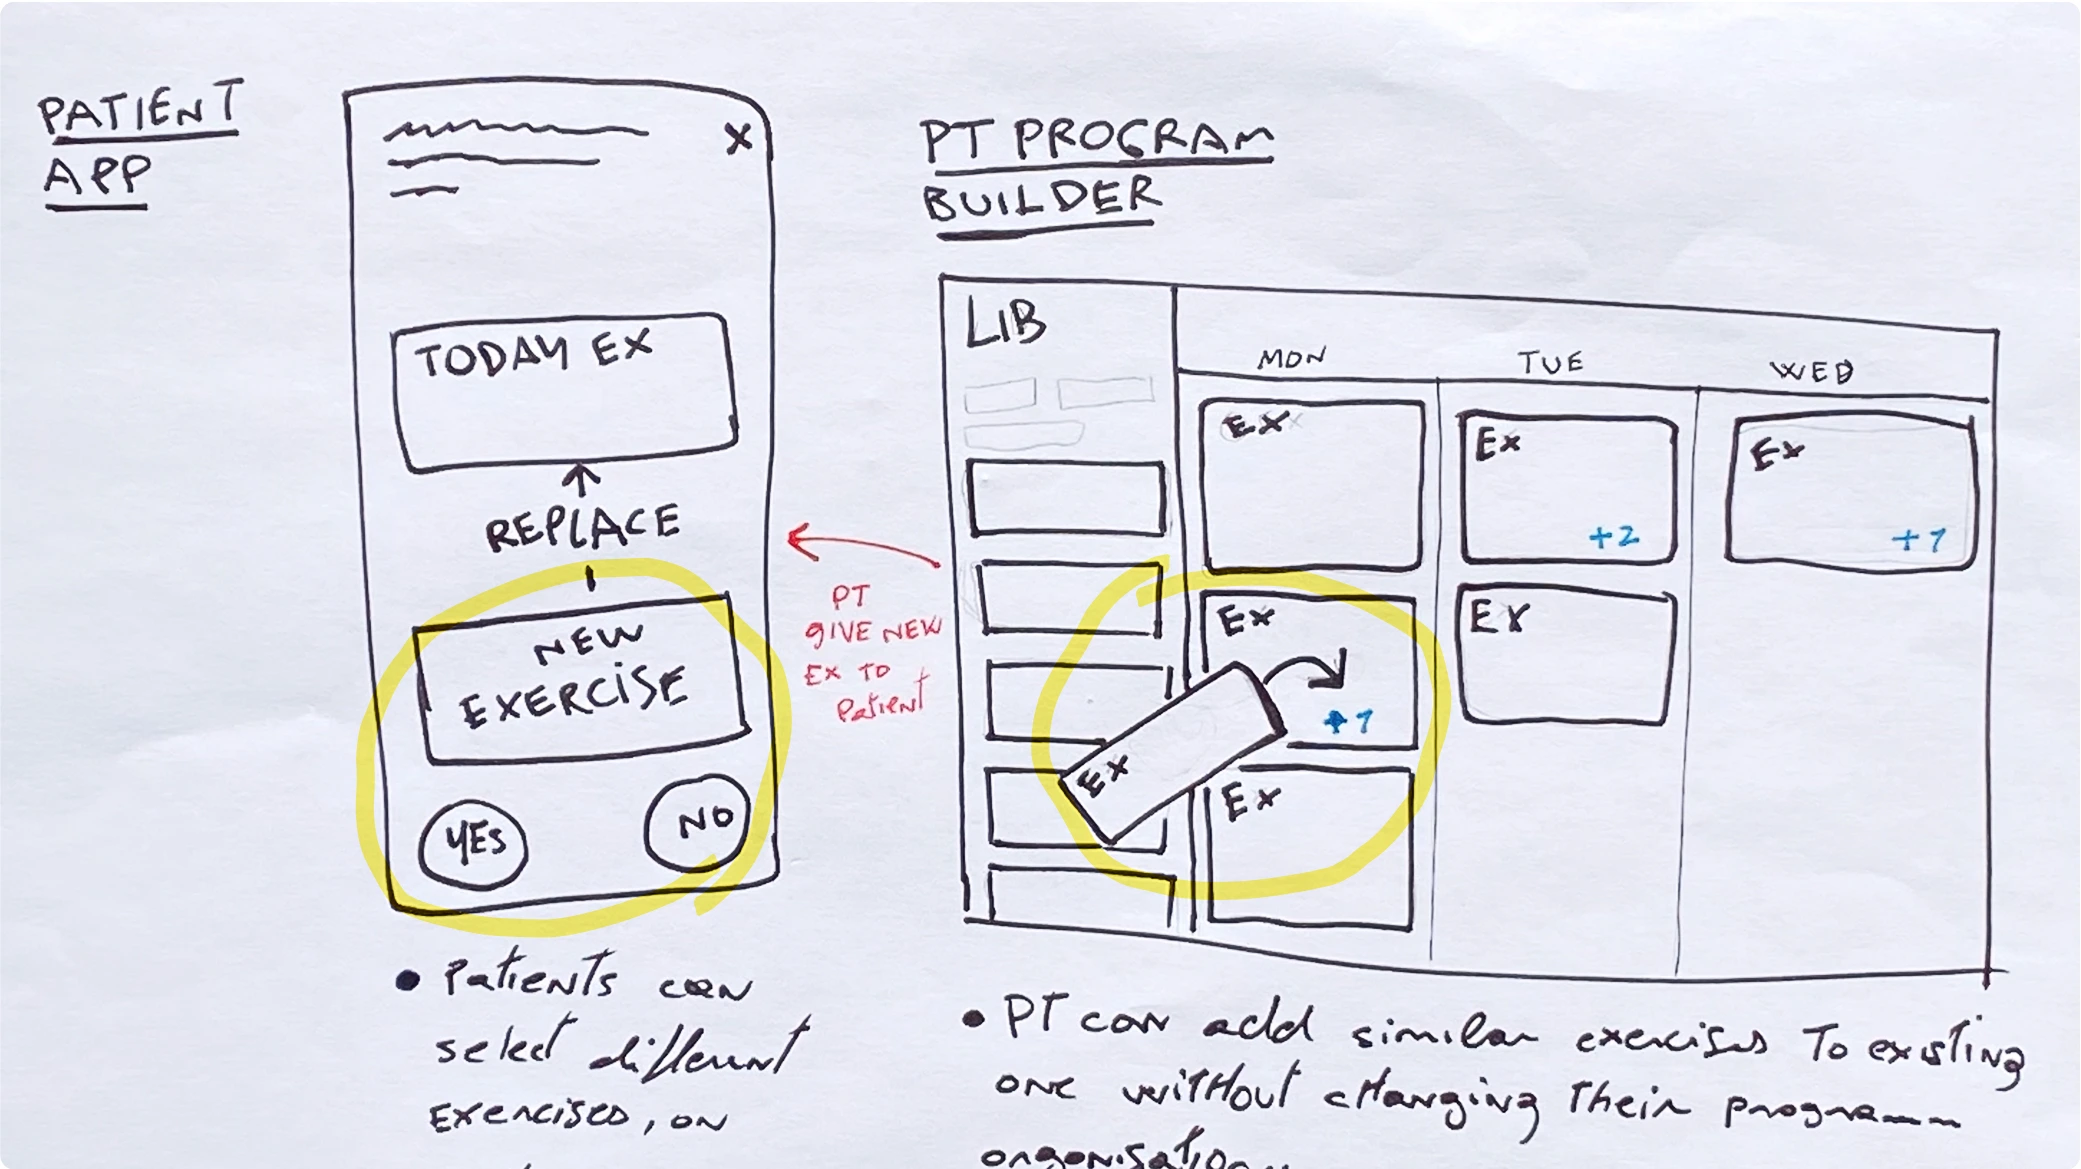 PATIENT
APP
X
TODAY EX
REPLACE
NEW
EXERCISE
YES
NO
PT
GIVE NEW
EX TO
Patient
PT PROGRAM
BUILDER
LIB
MON
TUE
WED
EX
EX
+1
EX
EX
EX
+2
EX
EX
+1
• Patients can
select different
Exercises, on
• PT can add similar exercises To existing
one without changing Their programm
organisation